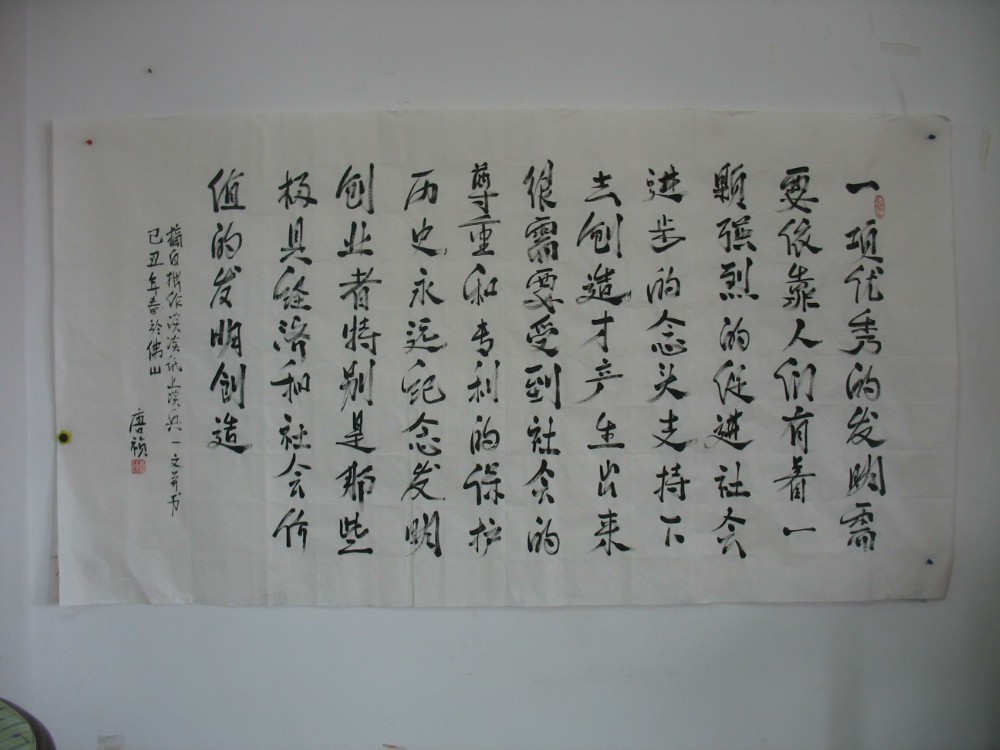 一项优秀的发明需
要依靠人们有着一
颗强烈的促进社会
进步的念头支持下
去创造才产生出来
很需要受到社会的
尊重和专利的保护
历史永远纪念发明
创业者特别是那些
极具经济和社会价
值的发明创造
摘自拙作 纸上谈兵一文并书
己丑年春於佛山
唐祯